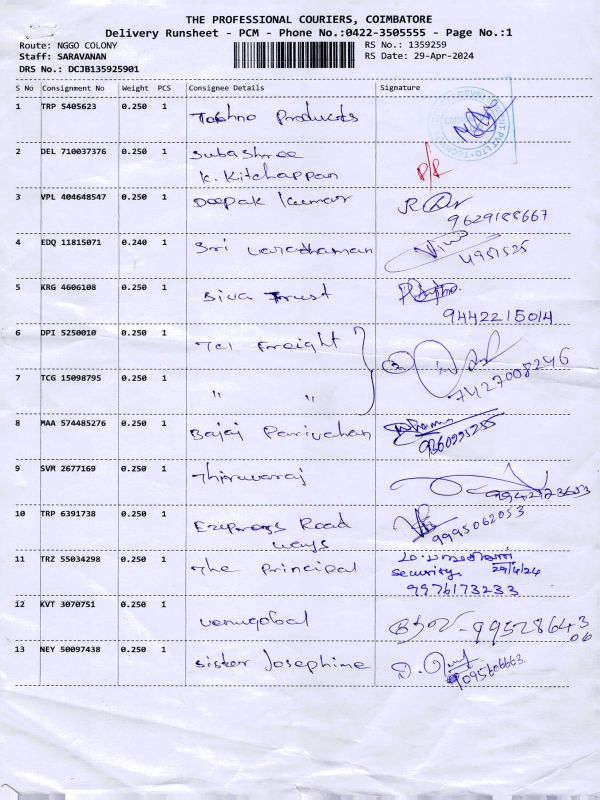 THE PROFESSIONAL COURIERS, COIMBATORE
Delivery Runsheet - PCM - Phone No.:0422-3505555 - Page No.:1
Route: NGGO COLONY RS No.: 1359259
Staff: SARAVANAN RS Date: 29-Apr-2024
DRS No.: DCJB135925901
S No Consignment No Weight PCS Consignee Details Signature
1 TRP 5405623 0.250 1 Techno Products
2 DEL 710037376 0.250 1 Subashree
K. Kitchappan
3 VPL 404648547 0.250 1 Deepak Kumar
9629188667
4 EDQ 11815071 0.240 1 Sri Varadhaman
4951525
5 KRG 4606108 0.250 1 Siva Trust
9442215014
6 DPI 5250010 0.250 1 TCI Freight
7427008246
7 TCG 15098795 0.250 1 " "
8 MAA 574485276 0.250 1 Bajaj Parivahan
9 SVM 2677169 0.250 1 Thirumaraj
10 TRP 6391738 0.250 1 Express Road
ways
9995062053
11 TRZ 55034298 0.250 1 The Principal
security 29/4/24
9976173233
12 KVT 3070751 0.250 1 Venugobal
13 NEY 50097438 0.250 1 Sister Josephine
9095606663